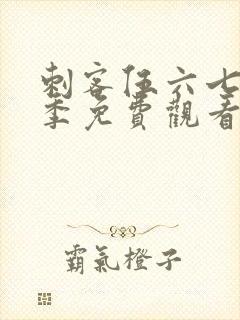 刺客伍六七
季免費觀看
霸氣橙子